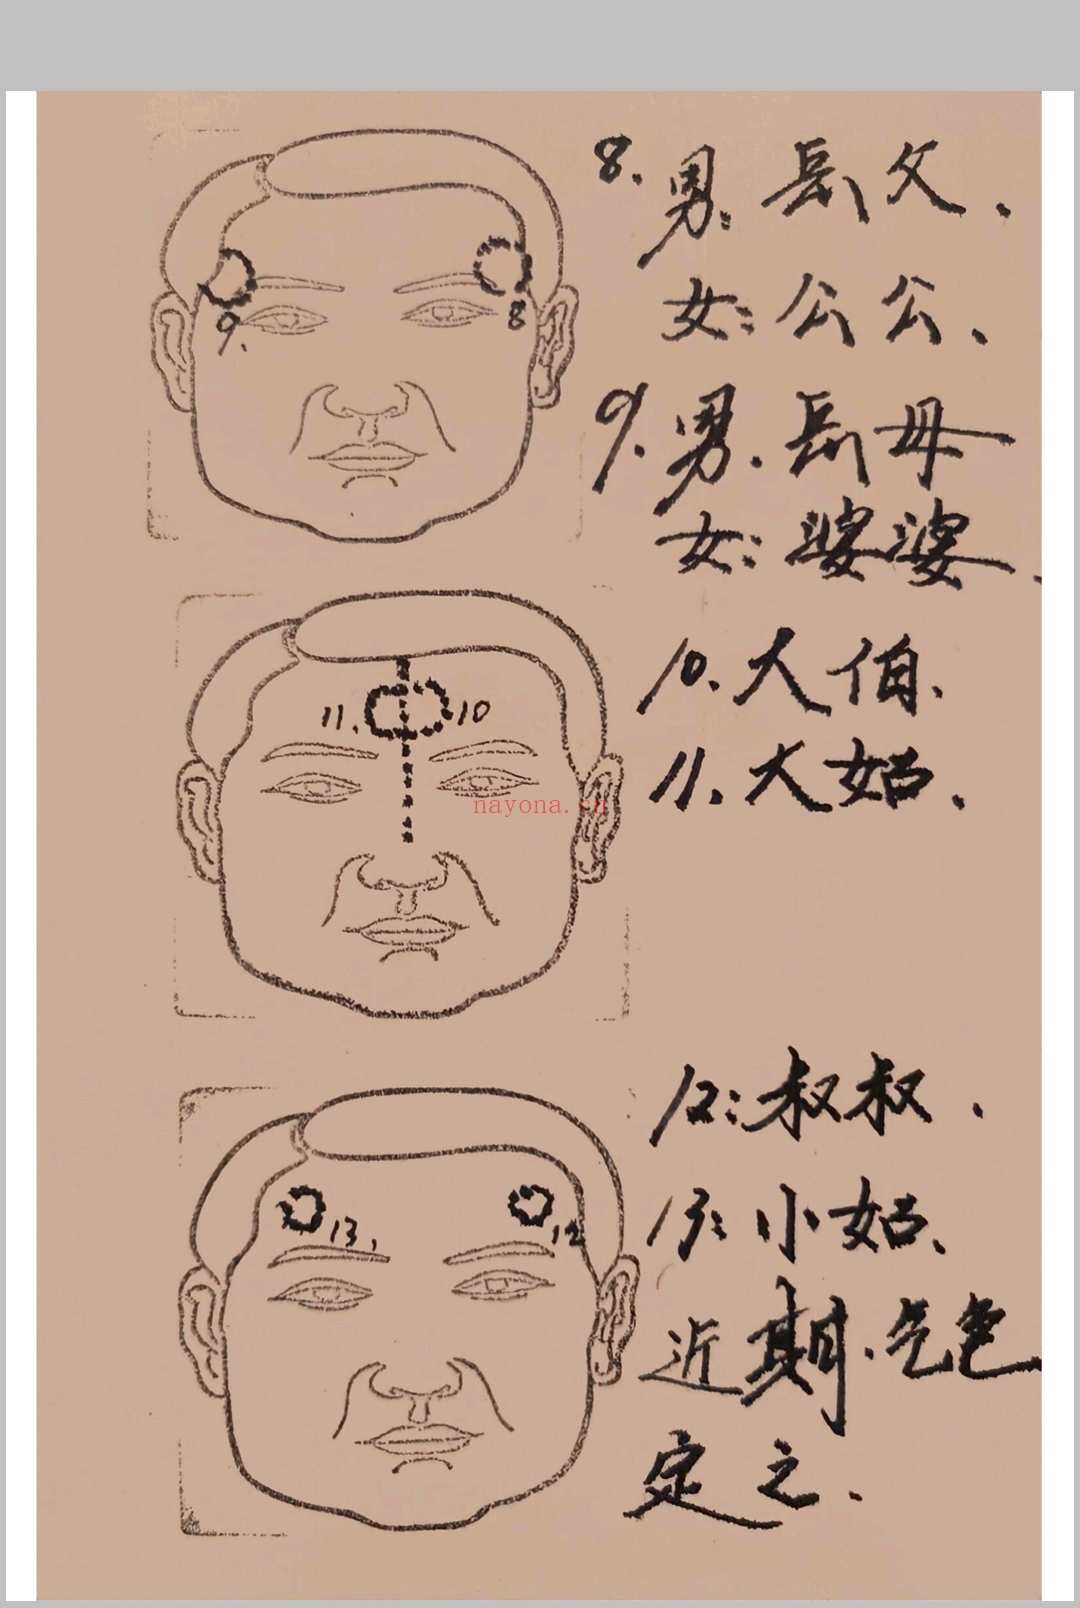 8. 男: 岳父.
女: 公公.
9. 男. 岳母
女: 婆婆.
9.
8
10. 大伯.
11. 大姑.
11.
10
nayona.cn
12: 叔叔.
13: 小姑.
13.
12
近期.气色
定之.